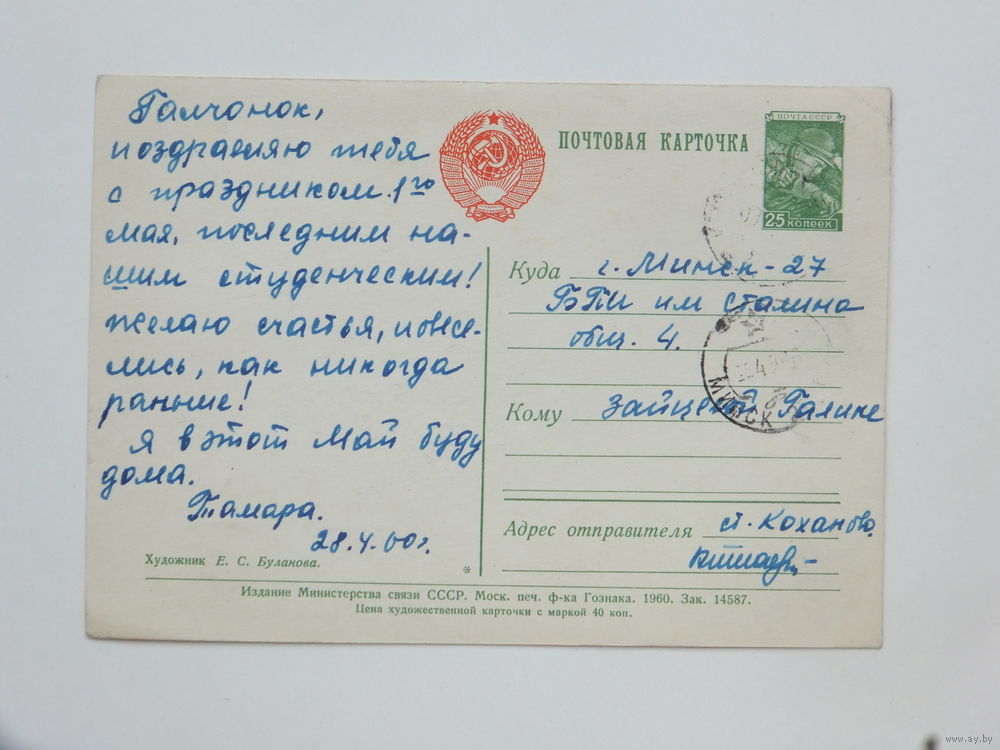 Галчонок,
поздравляю тебя
с праздником 1го
мая, последним на-
шим студенческим!
желаю счастья, повесе-
лись, как никогда
раньше!
Я в этот Май буду
дома.
Тамара.
28.4.60г.
Художник Е. С. Буланова.
*
ПОЧТОВАЯ КАРТОЧКА
ПОЧТА СССР
25 КОПЕЕК
Куда г. Минск-27
БПИ им Сталина
общ. 4.
Кому Зайцевой Галине
МИНСК
Адрес отправителя ст. Коханово.
Издание Министерства связи СССР. Моск. печ. ф-ка Гознака. 1960. Зак. 14587.
Цена художественной карточки с маркой 40 коп.
www.ay.by